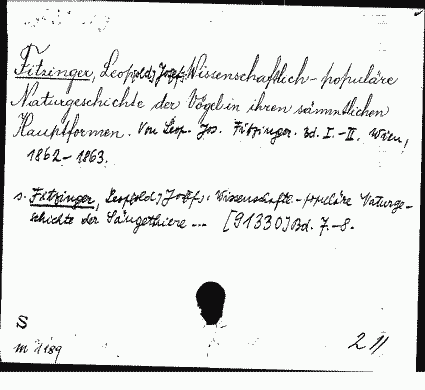 Fitzinger, Leopold, Josef, Wissenschaftlich-populäre
Naturgeschichte der Vögel in ihren sämmtlichen
Hauptformen. Von Leop. Jos. Fitzinger. Bd. I.-II. Wien,
1862-1863.
s. Fitzinger, Leopold, Josef,: Wissenschaftl.-populäre Naturge-
schichte der Säugethiere ... [91330] Bd. 7.-8.
S
211